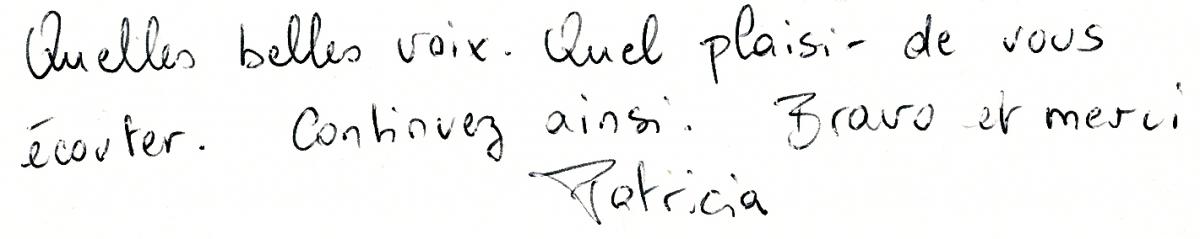 Quelles belles voix. Quel plaisir de vous
écouter. Continuez ainsi. Bravo et merci
Patricia